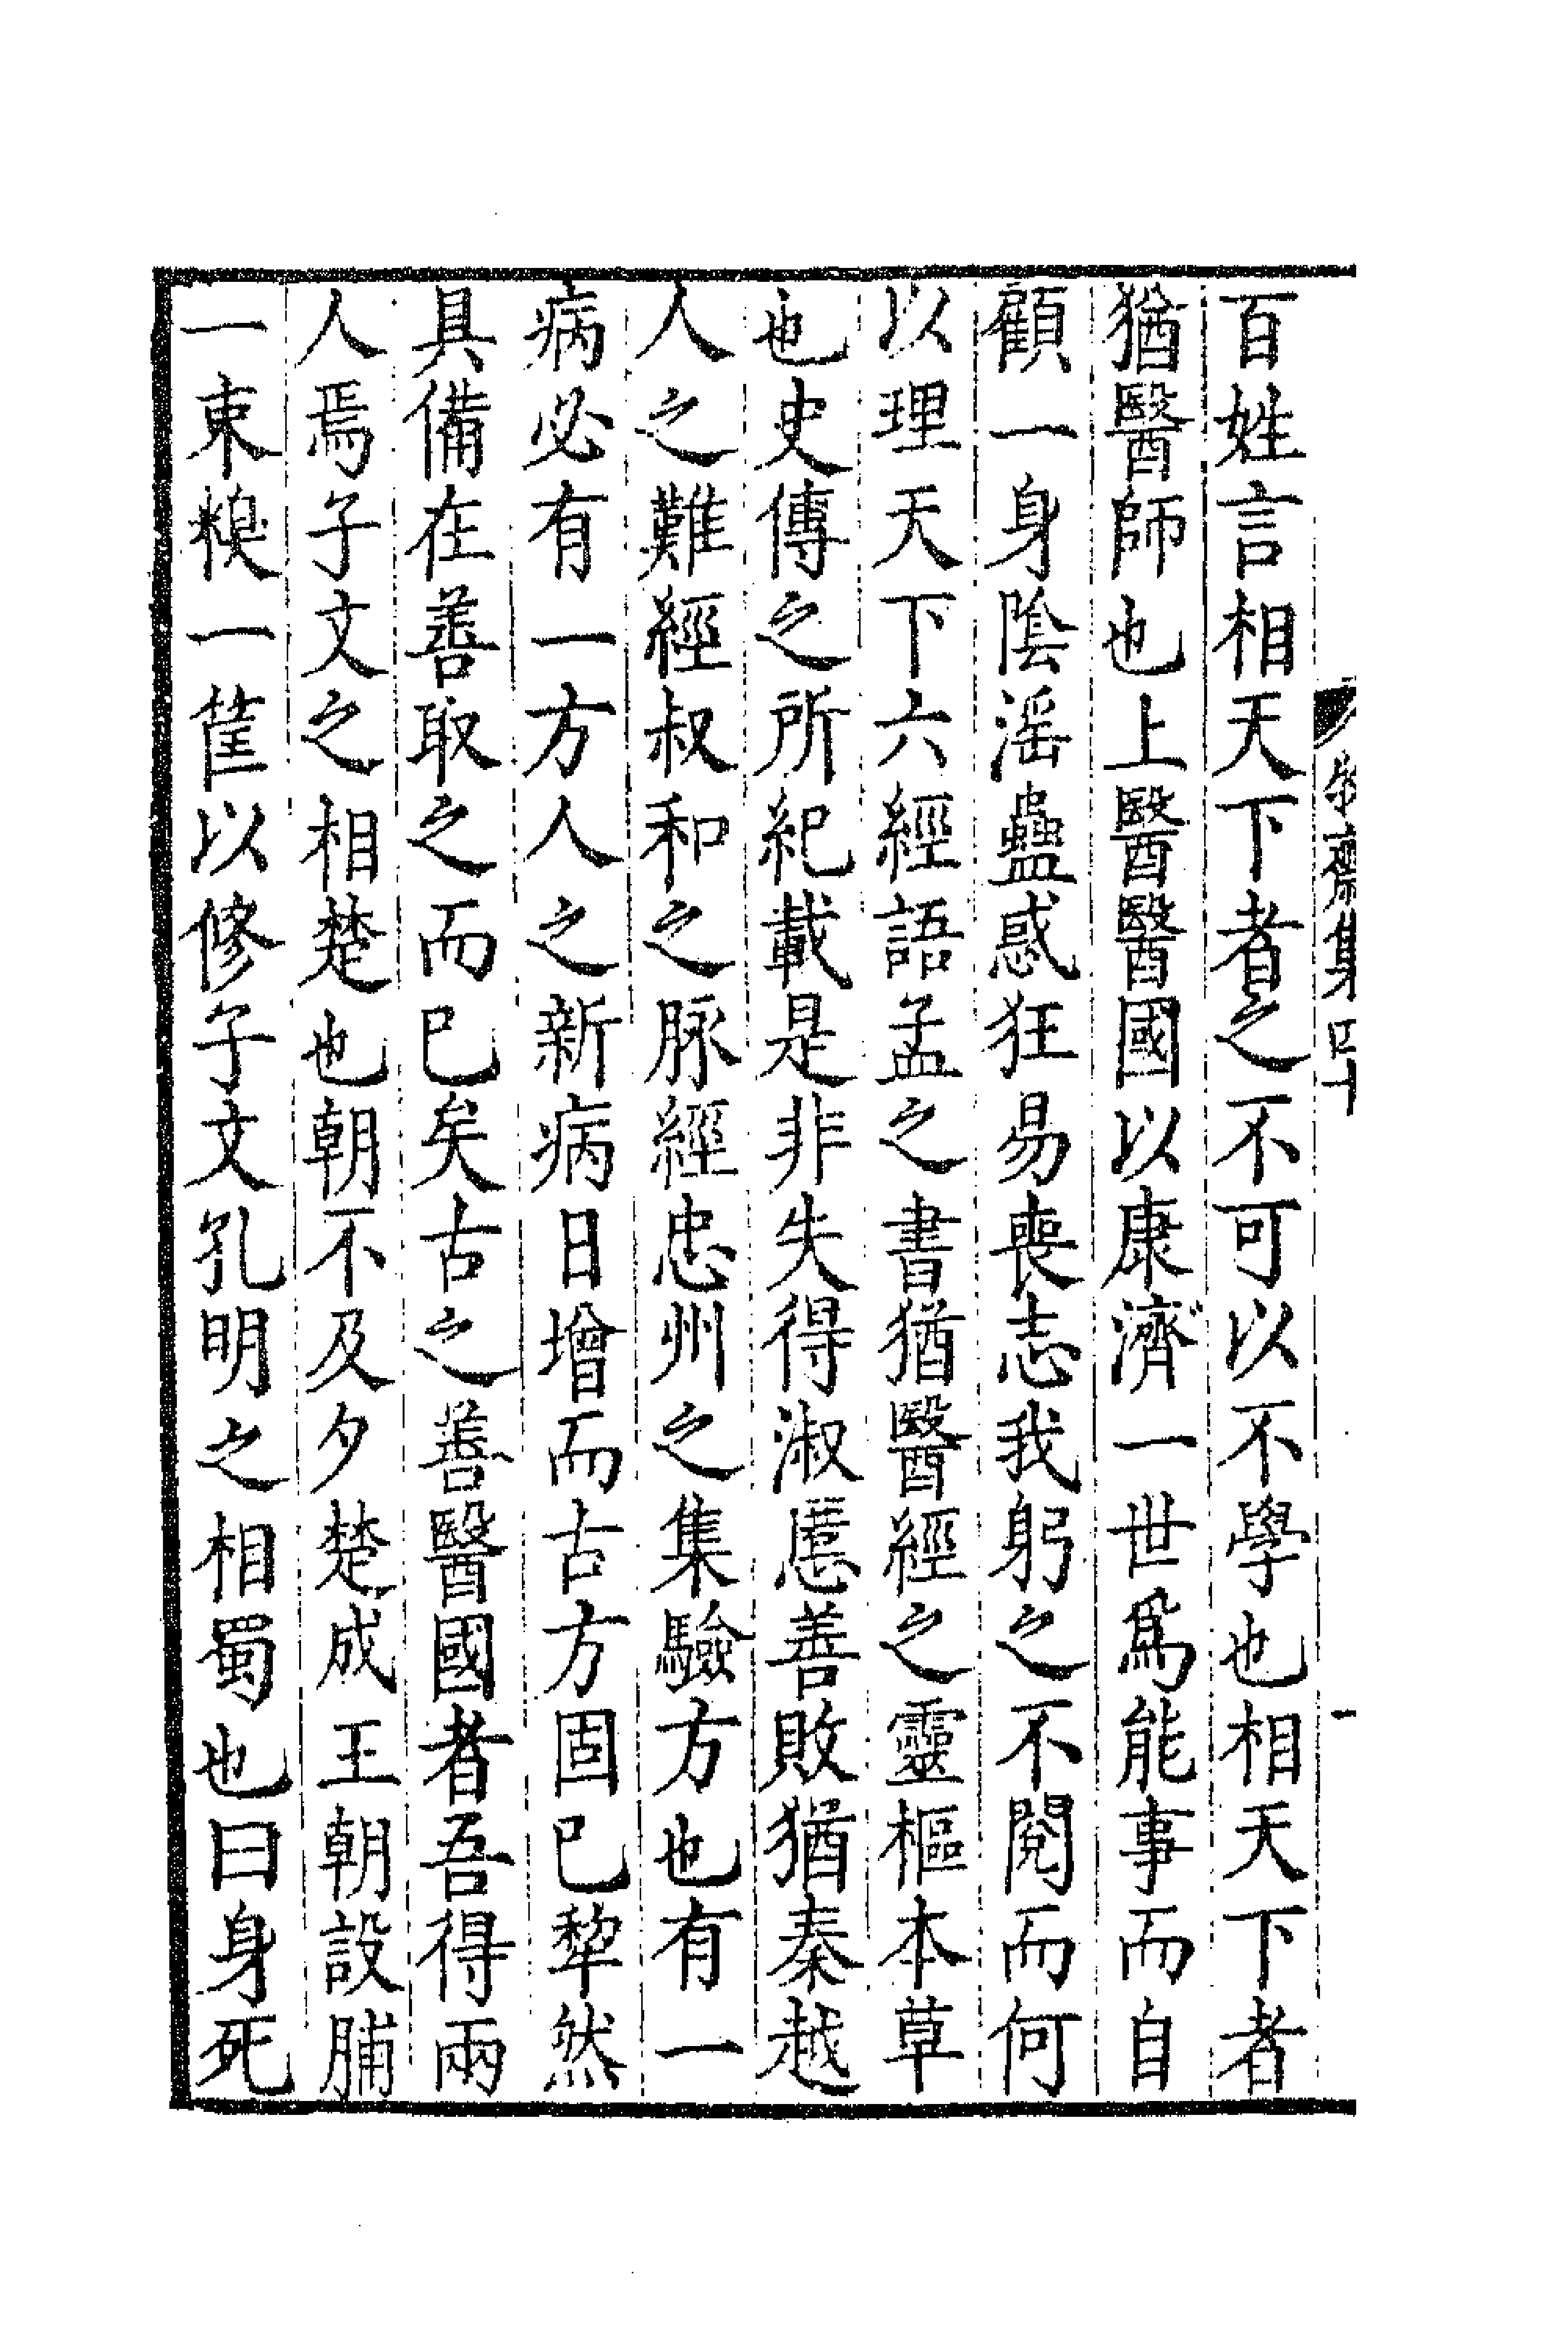 百姓言相天下者之不可以不學也相天下者
猶醫師也上醫醫國以康濟一世爲能事而自
顧一身陰滛蠱惑狂易喪志我躬之不閱而何
以理天下六經語孟之書猶醫經之靈樞本草
也史傳之所紀載是非失得淑慝善敗猶秦越
人之難經叔和之脉經忠州之集驗方也有一
病必有一方人之新病日增而古方固已犂然
具備在善取之而已矣古之善醫國者吾得兩
人焉子文之相楚也朝不及夕楚成王朝設脯
一束糗一筐以修子文孔明之相蜀也曰身死
齋集四十
一